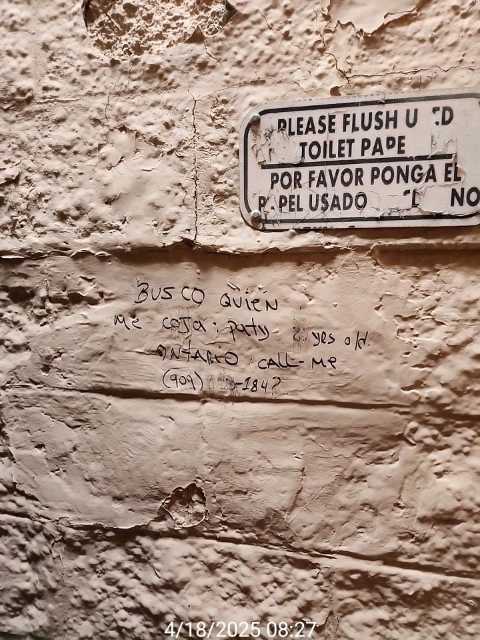 PLEASE FLUSH U ED
TOILET PAPE
POR FAVOR PONGA EL
P PEL USADO NO
BUSCO QUIEN
me coja: paty yes old.
ONTARIO CALL-Me
(909) -1842
4/18/2025 08:27